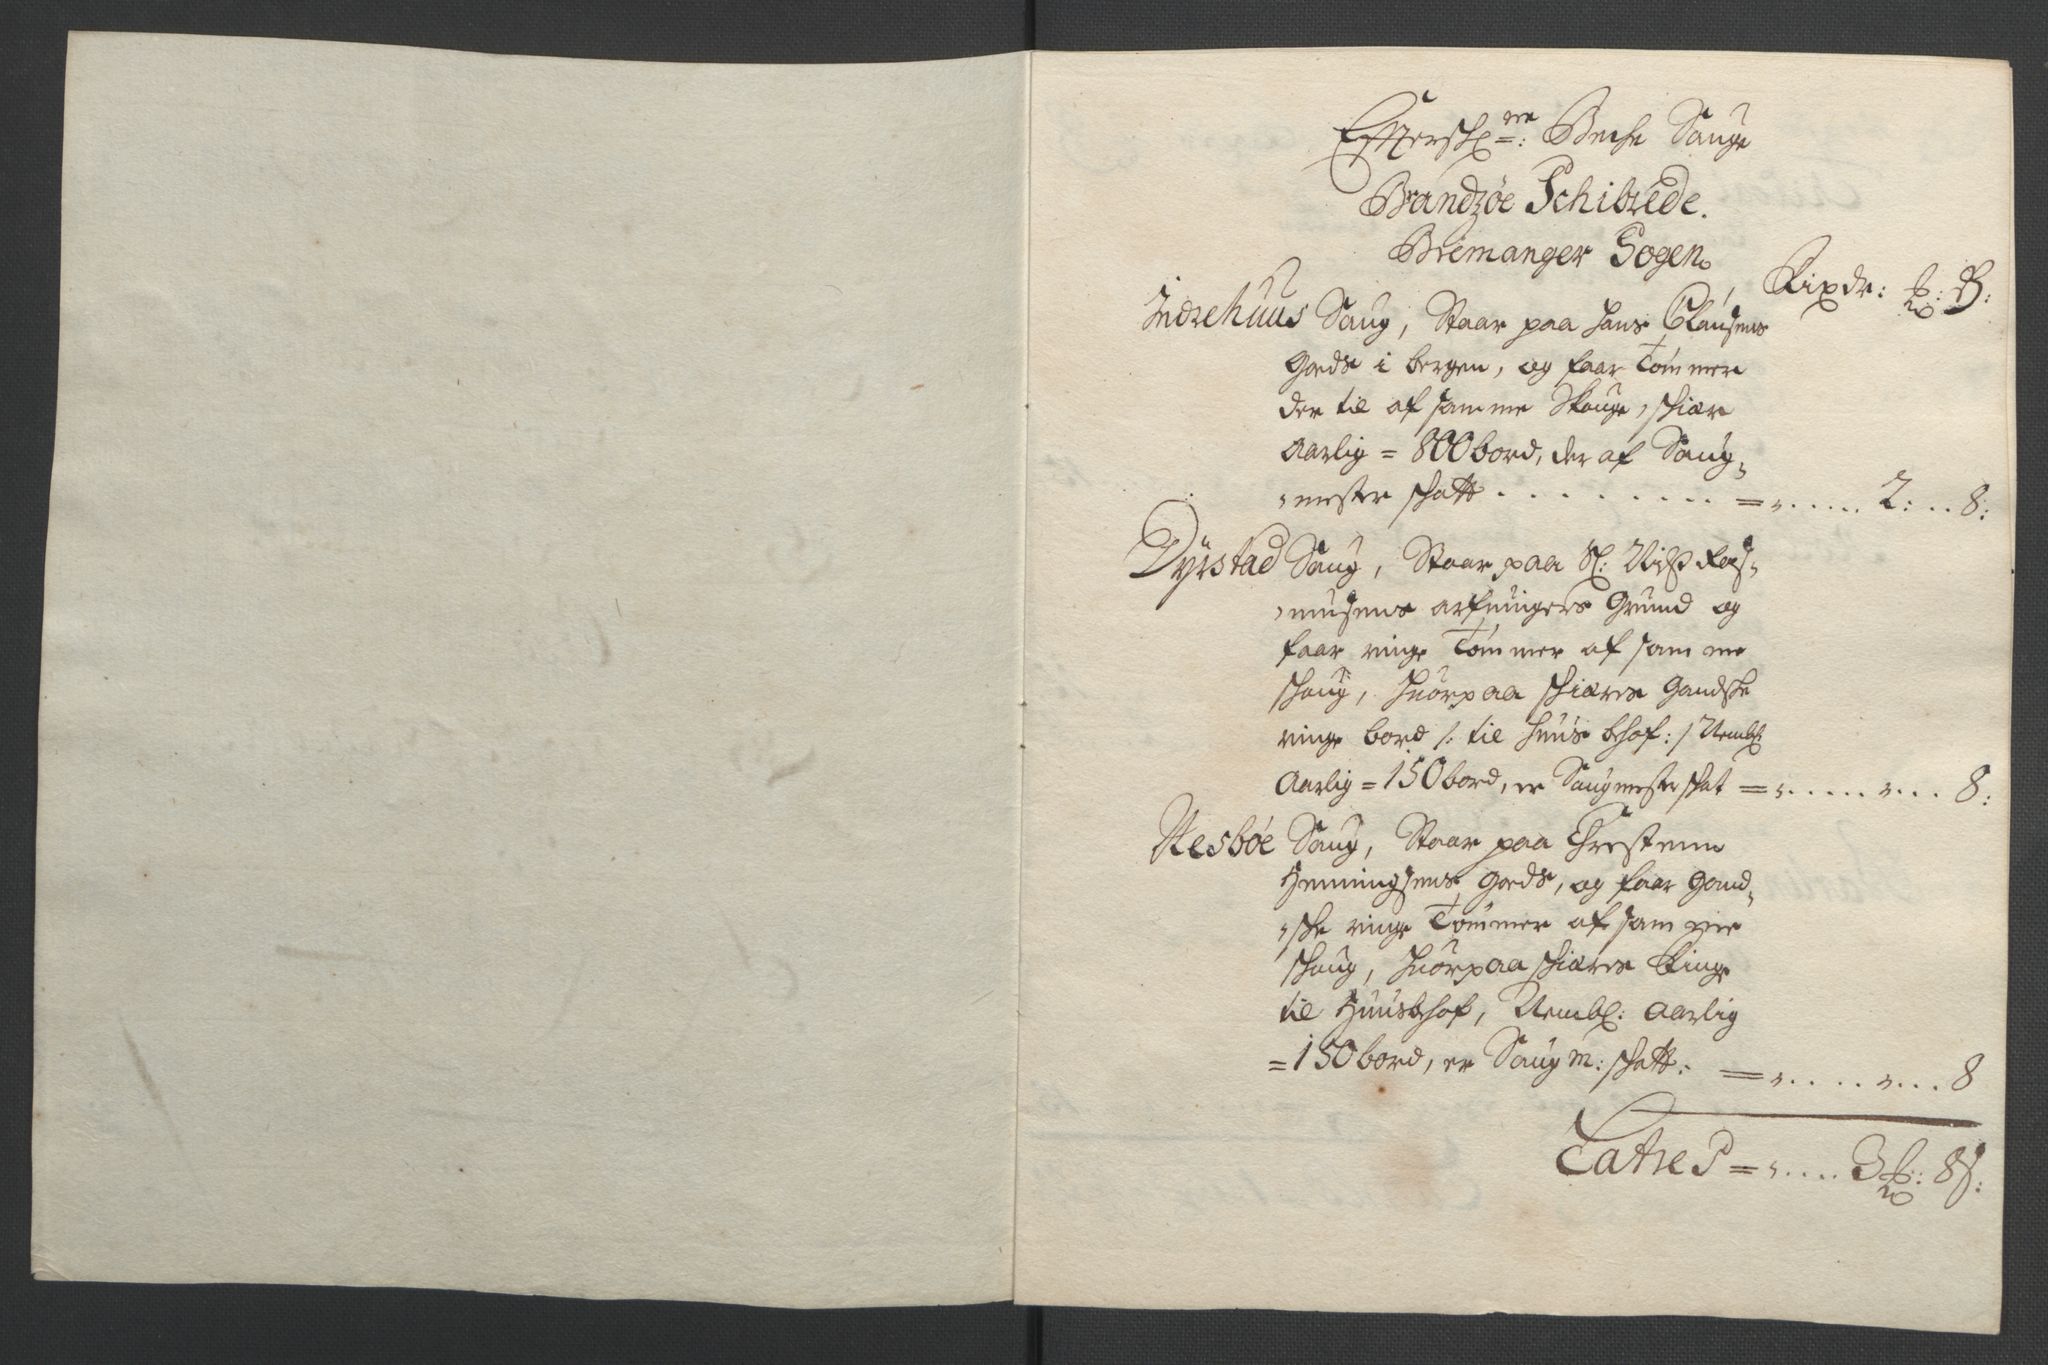 Effterschr:ne Beche Sauge
Brandzöe Schibrede.
Bremanger Sogen.
Rixdr: ℔: ß:
Indrehuus Saug, Staar paa Hans Clausens
Gods i bergen, og faar Tømmer
der til af samme Skouge, skiær
Aarlig = 800 bord, der af Saug-
mester skatt . . . . . . . . = „ . . . . . 2: . . 8:
Dyrstad Saug, Staar paa Sl: Nielß Ras-
musens arfvingers Grund og
faar ringe Tømmer af samme
skoug, huorpaa skiæres Gandske
ringe bord /: til huus behof: / Nembl:
Aarlig = 150 bord, er Saugmester skat = „ . . . . „ . . . 8:
Nesböe Saug, Staar paa Christenn
Henningsens Gods, og faar Gand-
ske ringe Tømmer af samme
skoug, huorpaa skiæres Ringe
til Huusbehof, Nembl: Aarlig
= 150 bord, er Saug m: skatt: = „ . . . . „ . . . 8
Latus = „ . . . . 3 ℔: 8 ß: